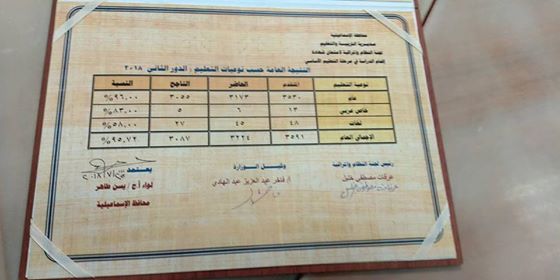 محافظة الإسماعيلية
مديرية التربية والتعليم
لجنة النظام والمراقبة لامتحان شهادة
إتمام الدراسة في مرحلة التعليم الأساسي
النتيجة العامة حسب نوعيات التعليم : الدور الثاني ٢٠١٨
نوعية التعليم المتقدم الحاضر الناجح النسبة
عام ٣٥٣٠ ٣١٧٣ ٣٠٥٥ ٩٦,٠٠%
خاص عربي ١٣ ٦ ٥ ٨٣,٠٠%
لغات ٤٨ ٤٥ ٢٧ ٥٨,٠٠%
الإجمالي العام ٣٥٩١ ٣٢٢٤ ٣٠٨٧ ٩٥,٧٢%
رئيس لجنة النظام والمراقبة
عرفات مصطفى خليل
وكيل الوزارة
عبد العزيز عبد الهادي
يعتمد
لواء أ.ح / يسن طاهر
محافظ الإسماعيلية